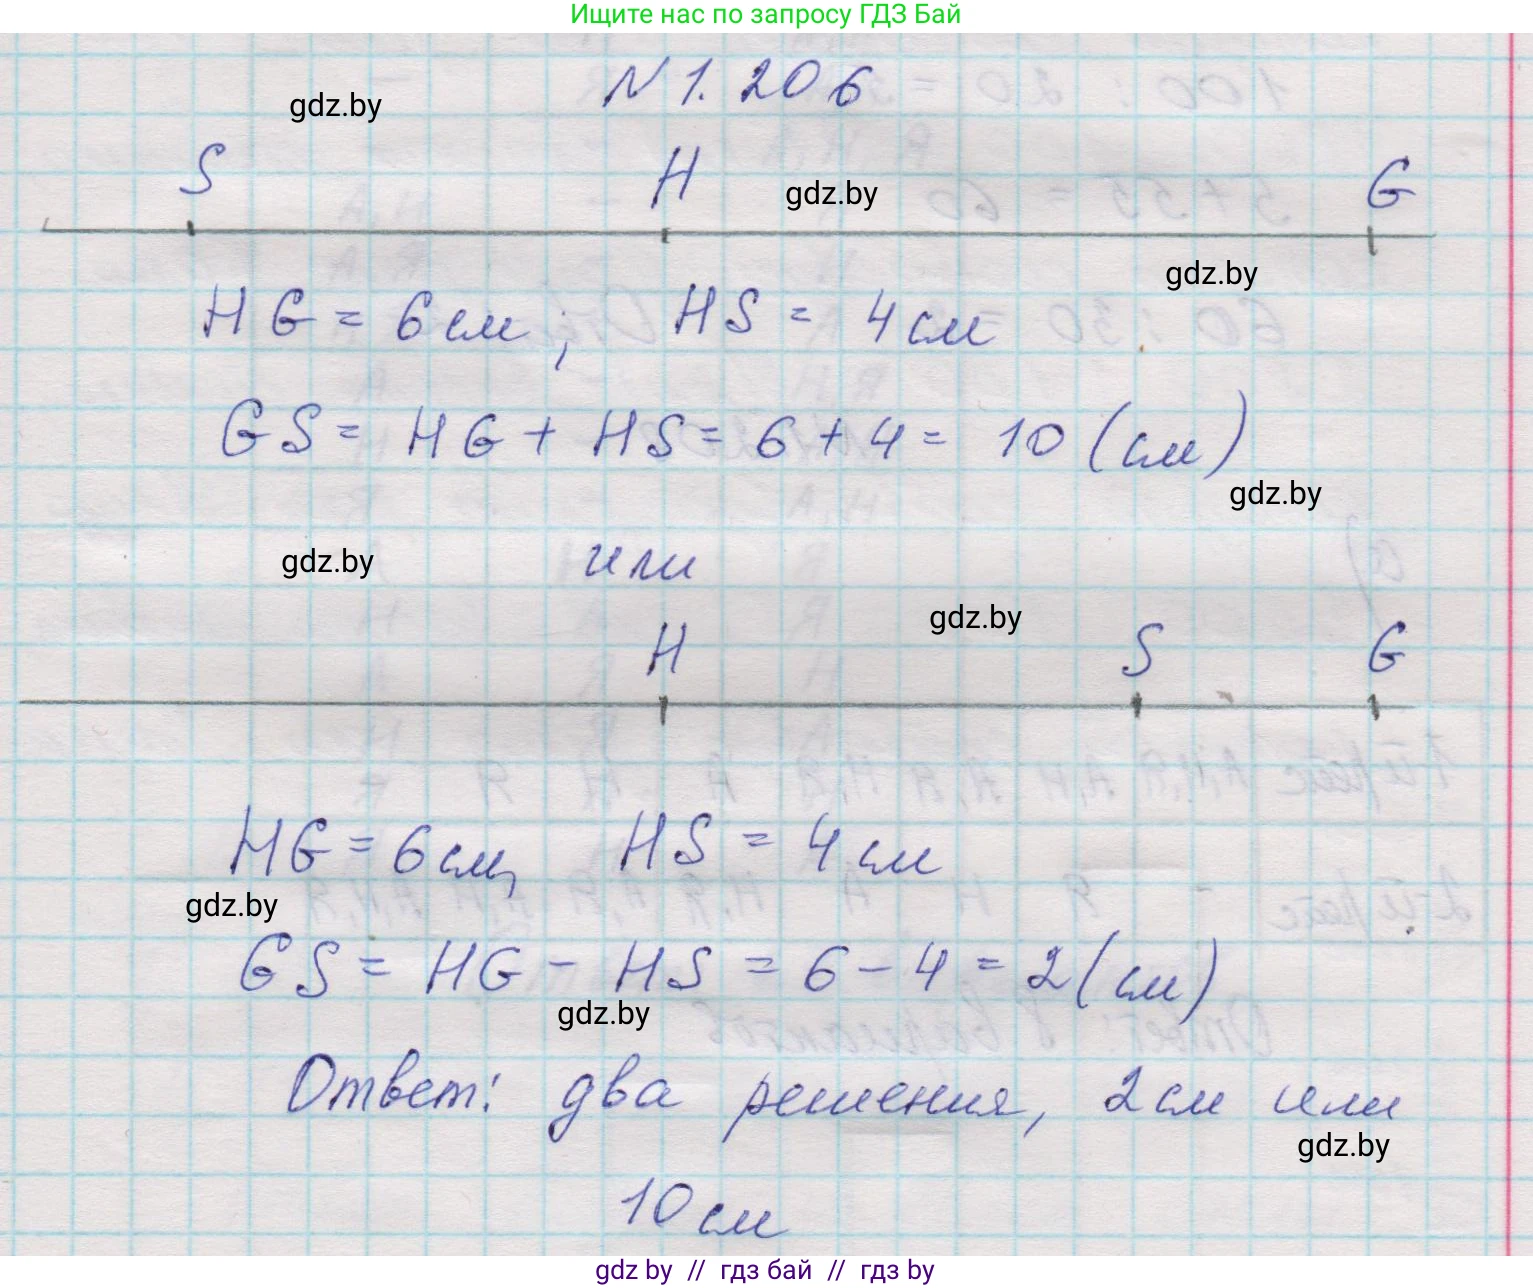 Ищите нас по запросу ГДЗ Бай
N 1. 206
gdz.by
S H G
gdz.by
gdz.by
HG = 6 см ; HS = 4 см
GS = HG + HS = 6 + 4 = 10 (см)
gdz.by
gdz.by
или
gdz.by
H S G
HG = 6 см, HS = 4 см
gdz.by
GS = HG - HS = 6 - 4 = 2 (см)
gdz.by
Ответ: два решения, 2 см или
gdz.by
10 см
gdz by // гдз бай // гдз by